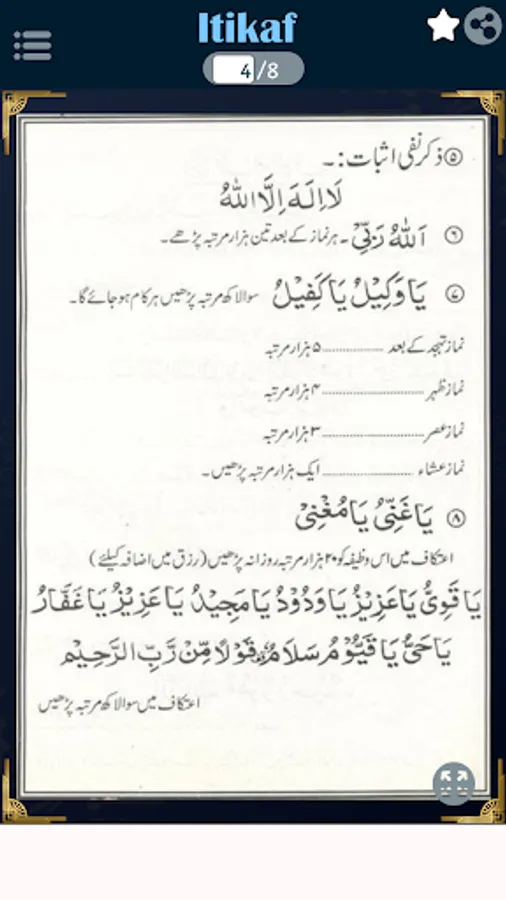 Itikaf
4/8
۵ ذکر نفی اثبات :۔
لَا اِلٰہَ اِلَّا اللّٰہُ
۶ اَللّٰہُ رَبِّیْ۔ ہر نماز کے بعد تین ہزار مرتبہ پڑھے۔
۷ یَا وَکِیْلُ یَا کَفِیْلُ سوا لاکھ مرتبہ پڑھیں ہر کام ہو جائے گا۔
نماز تہجد کے بعد ................ ۵ ہزار مرتبہ
نماز ظہر ................ ۴ ہزار مرتبہ
نماز عصر ................ ۳ ہزار مرتبہ
نماز عشاء ................ ایک ہزار مرتبہ پڑھیں۔
۸ یَا غَنِیُّ یَا مُغْنِیْ
اعتکاف میں اس وظیفہ کو ۲۰ ہزار مرتبہ روزانہ پڑھیں (رزق میں اضافہ کیلئے)
یَا قَوِیُّ یَا عَزِیْزُ یَا وَدُوْدُ یَا مَجِیْدُ یَا عَزِیْزُ یَا غَفَّارُ
یَا حَیُّ یَا قَیُّوْمُ سَلَامٌ قَوْلًا مِّنْ رَّبِّ الرَّحِیْمِ
اعتکاف میں سوا لاکھ مرتبہ پڑھیں